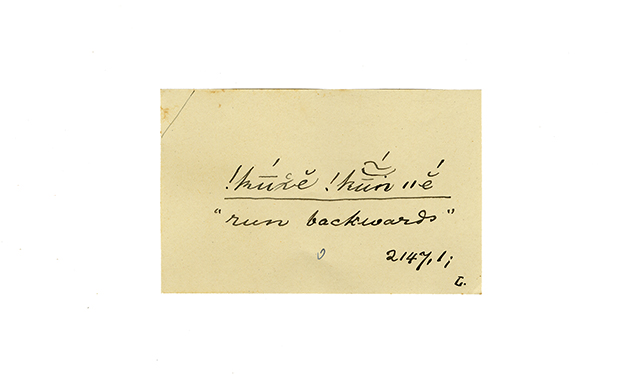 !kúїẽ !kũїn ǁĕ́
"run backwards"
2147,1;
L.